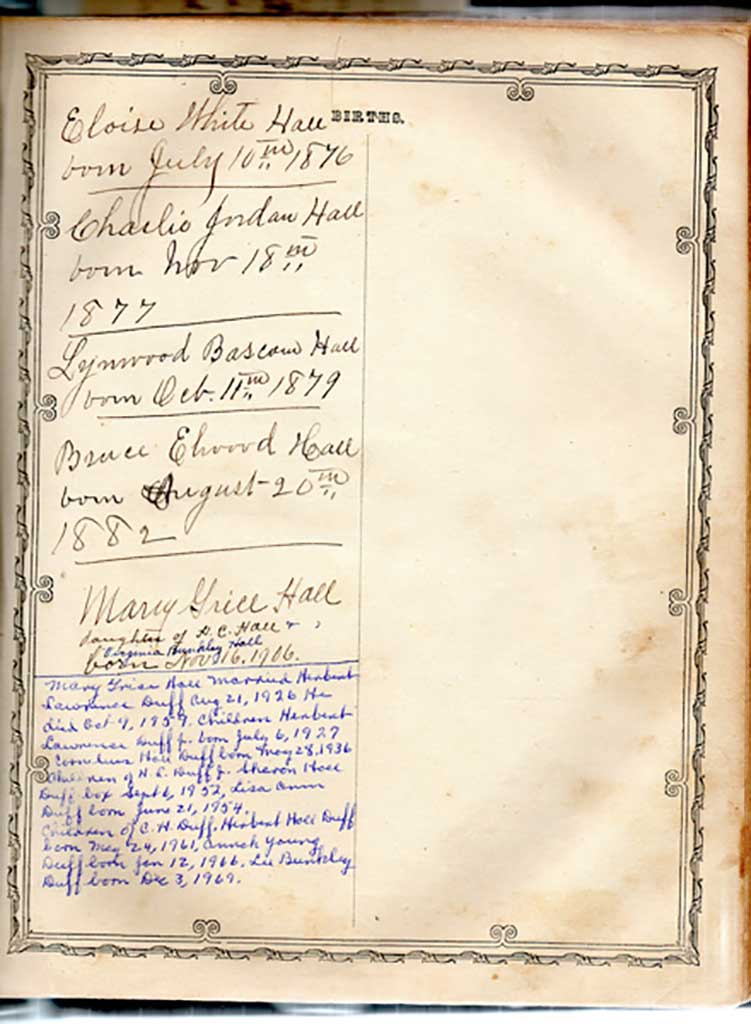 BIRTHS.
Eloise White Hall
born July 10th 1876
Charlie Jordan Hall
born Nov 18th
1877
Lynwood Bascom Hall
born Oct. 11th 1879
Bruce Elwood Hall
born August 20th
1882
Mary Grice Hall
daughter of H. C. Hall &
Virginia Bunkley Hall
born Nov 16, 1906.
Mary Grice Hall married Herbert
Lawrence Duff Aug 21, 1926 He
died Oct 9, 1959. Children Herbert
Lawrence Duff Jr. born July 6, 1927
Cornelius Hall Duff born May 28, 1936
Children of H. L. Duff Jr. Sharon Hall
Duff box Sept 6, 1952, Lisa Ann
Duff born June 21, 1954.
Children of C. H. Duff. Herbert Hall Duff
born May 24, 1961, Young
Duff born Jan 12, 1966. Lee Bunkley
Duff born Dec 3, 1969.